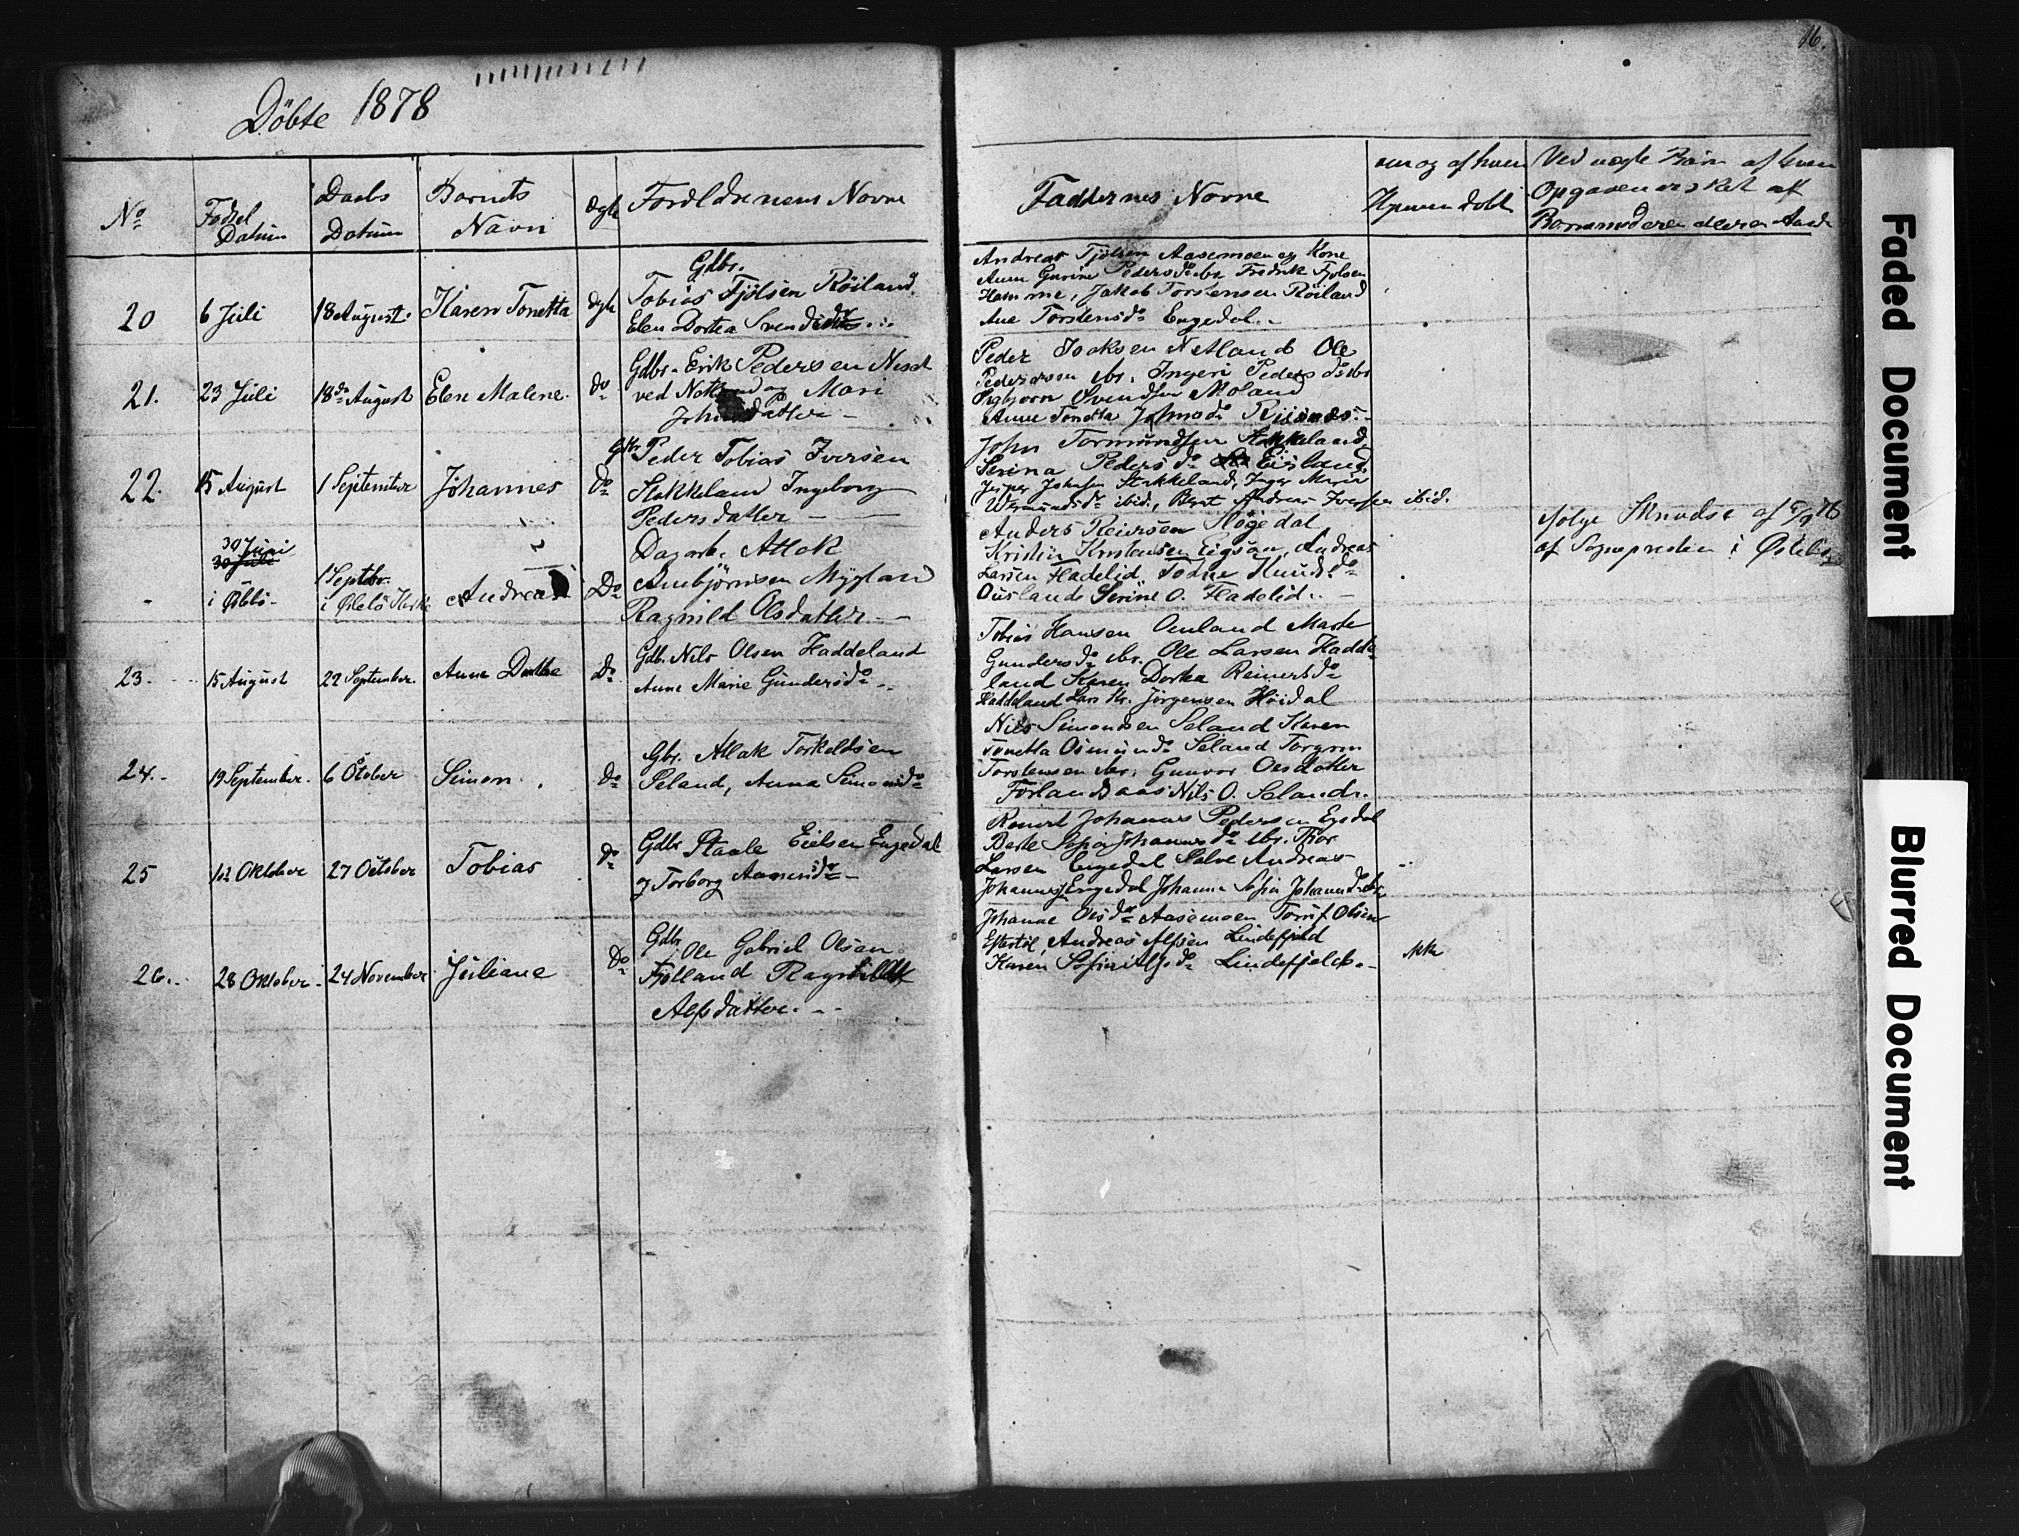 16.
Döbte 1878
No Födsel Datum Daabs Datum Barnets Navn Ægte Forældrenens Navne
Faddernes Navne om og af hvem Hjemmedöbt Ved uægte Börn af hvem Opgaven er sket af Barnemoderen eller en Anden
20 6 Juli 18 August. Karen Tonetta Ægte
Gdbr.
Tobias Fjölsen Röiland
Elen Dortea Svendsdtr
Andreas Fjölsen Aasemoen og Kone
Anne Gurine Pedersdo ibr Fredrik Fjolsen
Homme, Jakob Torstensen Röiland
Ane Torstensdo Engedal.
21. 23 Juli 18de August Elen Malene. do
Gdbr. Erik Pedersen
ved og Mari
Peder Isaksen Netland Ole
Pedersen ibr. Ingeri Pedersdo ibr
Sigbjorn Svendsen Moland
Anne Tonetta Johnsdo Risnæs.
22. 15 August 1 September Johannes do
Gbr. Peder Tobias Iversen
Stokkeland Ingeborg
Pedersdatter
John Tormundsen Stokkeland,
Serina Pedersdo Eisland
Jesper Johnsen Stokkeland, Inger Marie
Wermundsdo ibid., Berte Andrea Iversen ibid.
30 Juni
30 Juli
i Öslebö 1 Septbr. i Öslebö Kirke Andreas Do
Dagarb. Atlak
Anebjörnsen Mygland
Ragnild Olsdatter
Anders Reiersen Högedal
Kristin Kristensen Eigsaa, Andreas
Larsen Hadelid, Tobine Knudsdo
Ousland Serine O. Hadelid.
ifölge Skrivelse af 5/9 78
af Sognepresten i Öslebö
23. 15 August 22 September Anna Dorthe Do
Gdb. Nils Olsen Haddeland
Anne Marie Gundersdo
Tobias Hansen Omland Marte
Gundersdo ibr. Ole Larsen Hadde-
land Karen Dortea Reinertsdo
Haddeland Lars Kr. Jörgensen Höidal
24. 19 September. 6 Otober Simon. do
Gbr. Atlak Torkeldsen
Seland, Anna Simonsdo
Nils Simonsen Seland Karen
Tonetta Osmundsdo Seland Torgrim
Torstensen ibr. Gunvor Olsdatter
Förlandsaas Nils O. Seland.
25 12 Oktober 27 October Tobias do
Gdbr Staale Eielsen Engedal
og Torborg Aanensdo
Reinert Johannes Pedersen Egedal
Berte Sofie Johannesdo ibr. Thor
Larsen Engedal Salve Andreas
Johannesen Engedal Johanne Sofie Johannesdo ibr.
26. 28 Oktober 24 November. Juliane Do
Gdbr
Ole Gabriel Olsen
Fjotland Ragnild
Alfsdatter.
Johanne Olsdo Aasemoen Torjuf Olsen
Eftestöl Andreas Alfsen Lindefjeld
Karen Sofine Alfsdo Lindefjeld.
ikke
Faded Document
Blurred Document